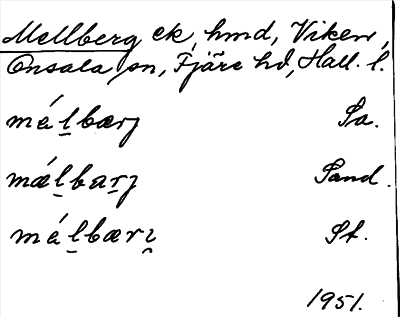 Mellberg ek, hmd, Viken,
Onsala sn, Fjäre hd, Hall. l.
mé̱lbærj Sa.
mælbarj Sand.
mélbærɿ St.
1951.